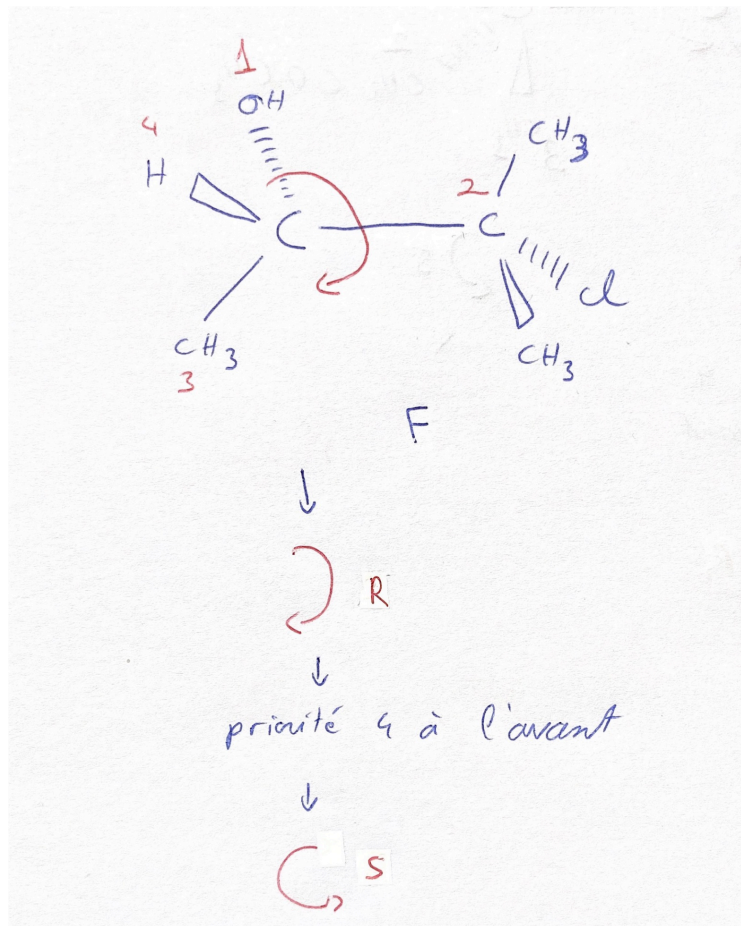 1
OH
4
H
CH3
2
C
C
Cl
CH3
3
CH3
F
R
priorité 4 à l'avant
S